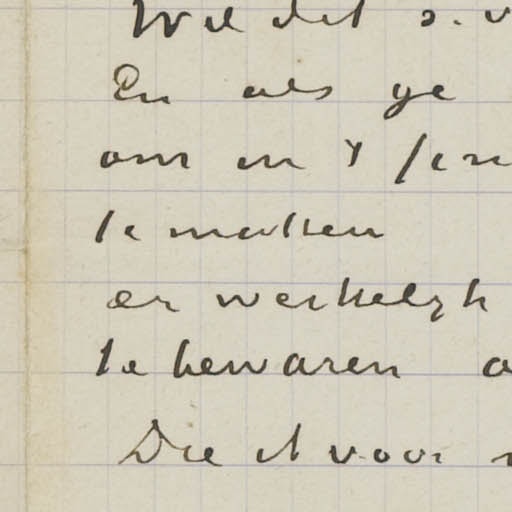 Wil dit s. v
En als ge
om en
te maken
er werkelyk
te bewaren
Die et voor